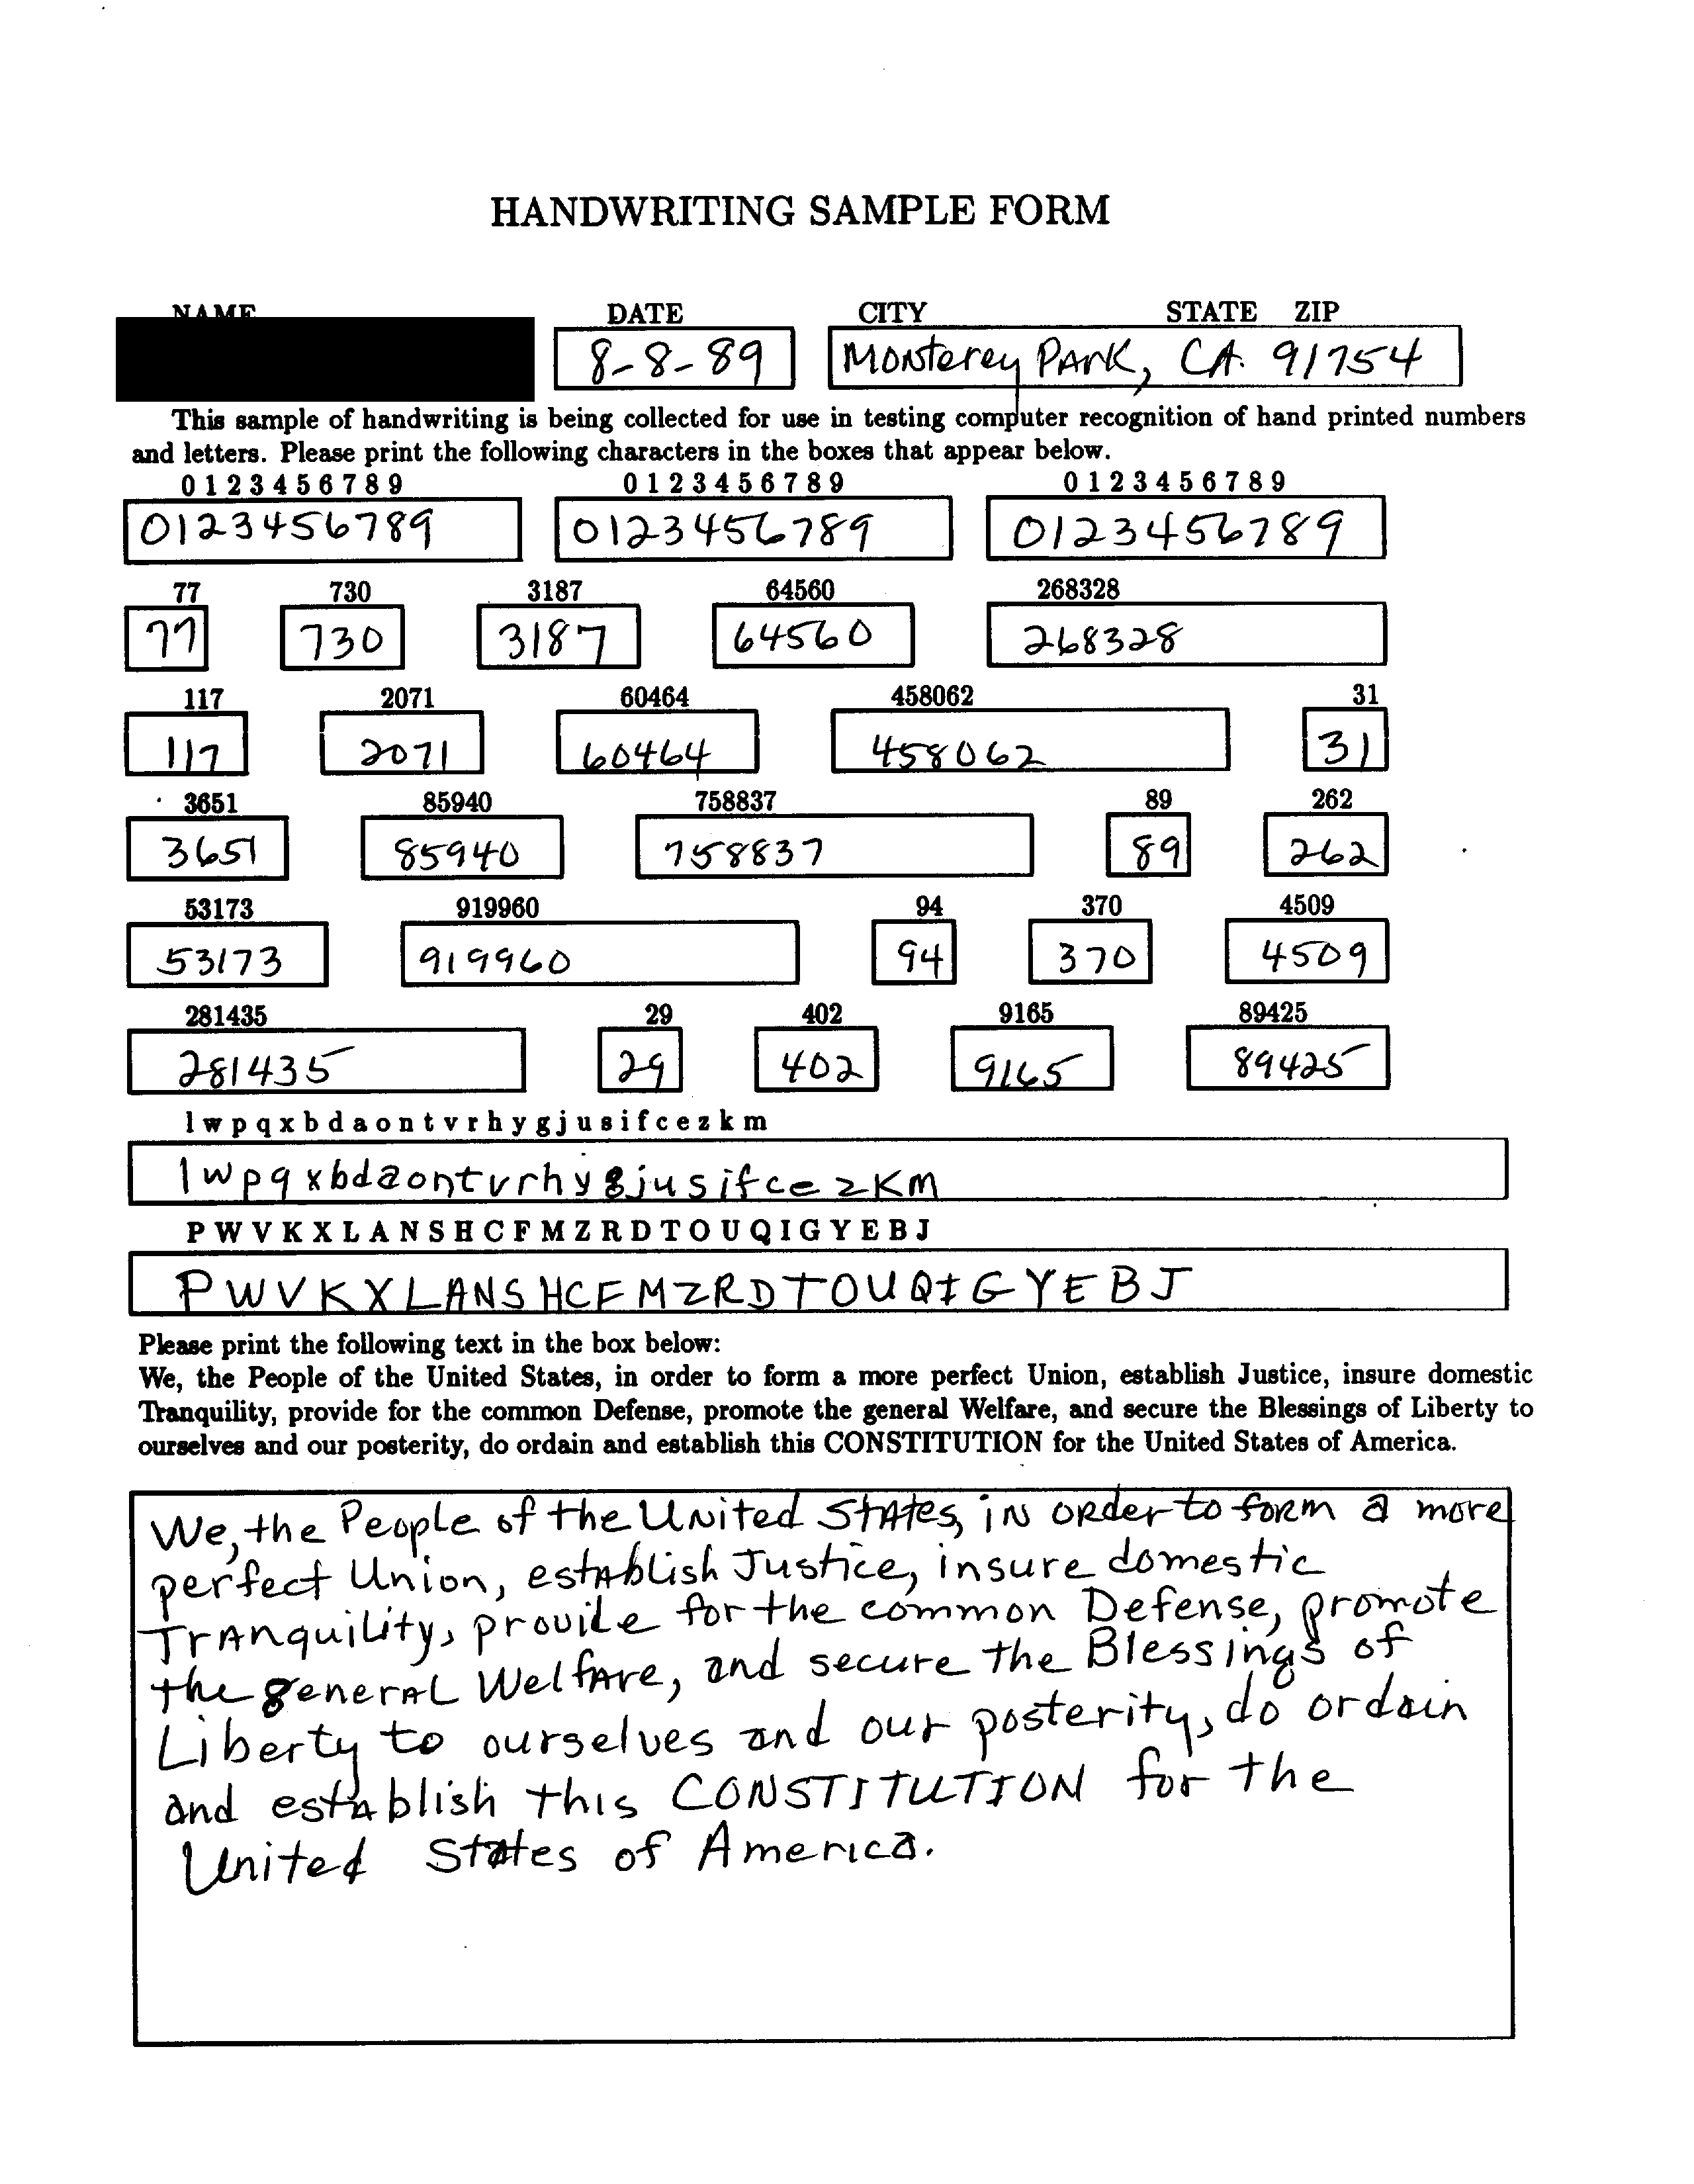 HANDWRITING SAMPLE FORM
NAME DATE CITY STATE ZIP
8-8-89 Monterey Park, CA. 91754
This sample of handwriting is being collected for use in testing computer recognition of hand printed numbers
and letters. Please print the following characters in the boxes that appear below.
0 1 2 3 4 5 6 7 8 9 0 1 2 3 4 5 6 7 8 9 0 1 2 3 4 5 6 7 8 9
0123456789 0123456789 0123456789
77 730 3187 64560 268328
77 730 3187 64560 268328
117 2071 60464 458062 31
117 2071 60464 458062 31
3651 85940 758837 89 262
3651 85940 758837 89 262
53173 919960 94 370 4509
53173 919960 94 370 4509
281435 29 402 9165 89425
281435 29 402 9165 89425
l w p q x b d a o n t v r h y g j u s i f c e z k m
l w p q x b d a o n t v r h y g j u s i f c e z K M
P W V K X L A N S H C F M Z R D T O U Q I G Y E B J
P W V K X L A N S H C F M Z R D T O U Q I G Y E B J
Please print the following text in the box below:
We, the People of the United States, in order to form a more perfect Union, establish Justice, insure domestic
Tranquility, provide for the common Defense, promote the general Welfare, and secure the Blessings of Liberty to
ourselves and our posterity, do ordain and establish this CONSTITUTION for the United States of America.
We, the People of the United States, in order to form a more
perfect Union, establish Justice, insure domestic
Tranquility, provide for the common Defense, promote
the general Welfare, and secure the Blessings of
Liberty to ourselves and our posterity, do ordain
and establish this CONSTITUTION for the
United States of America.